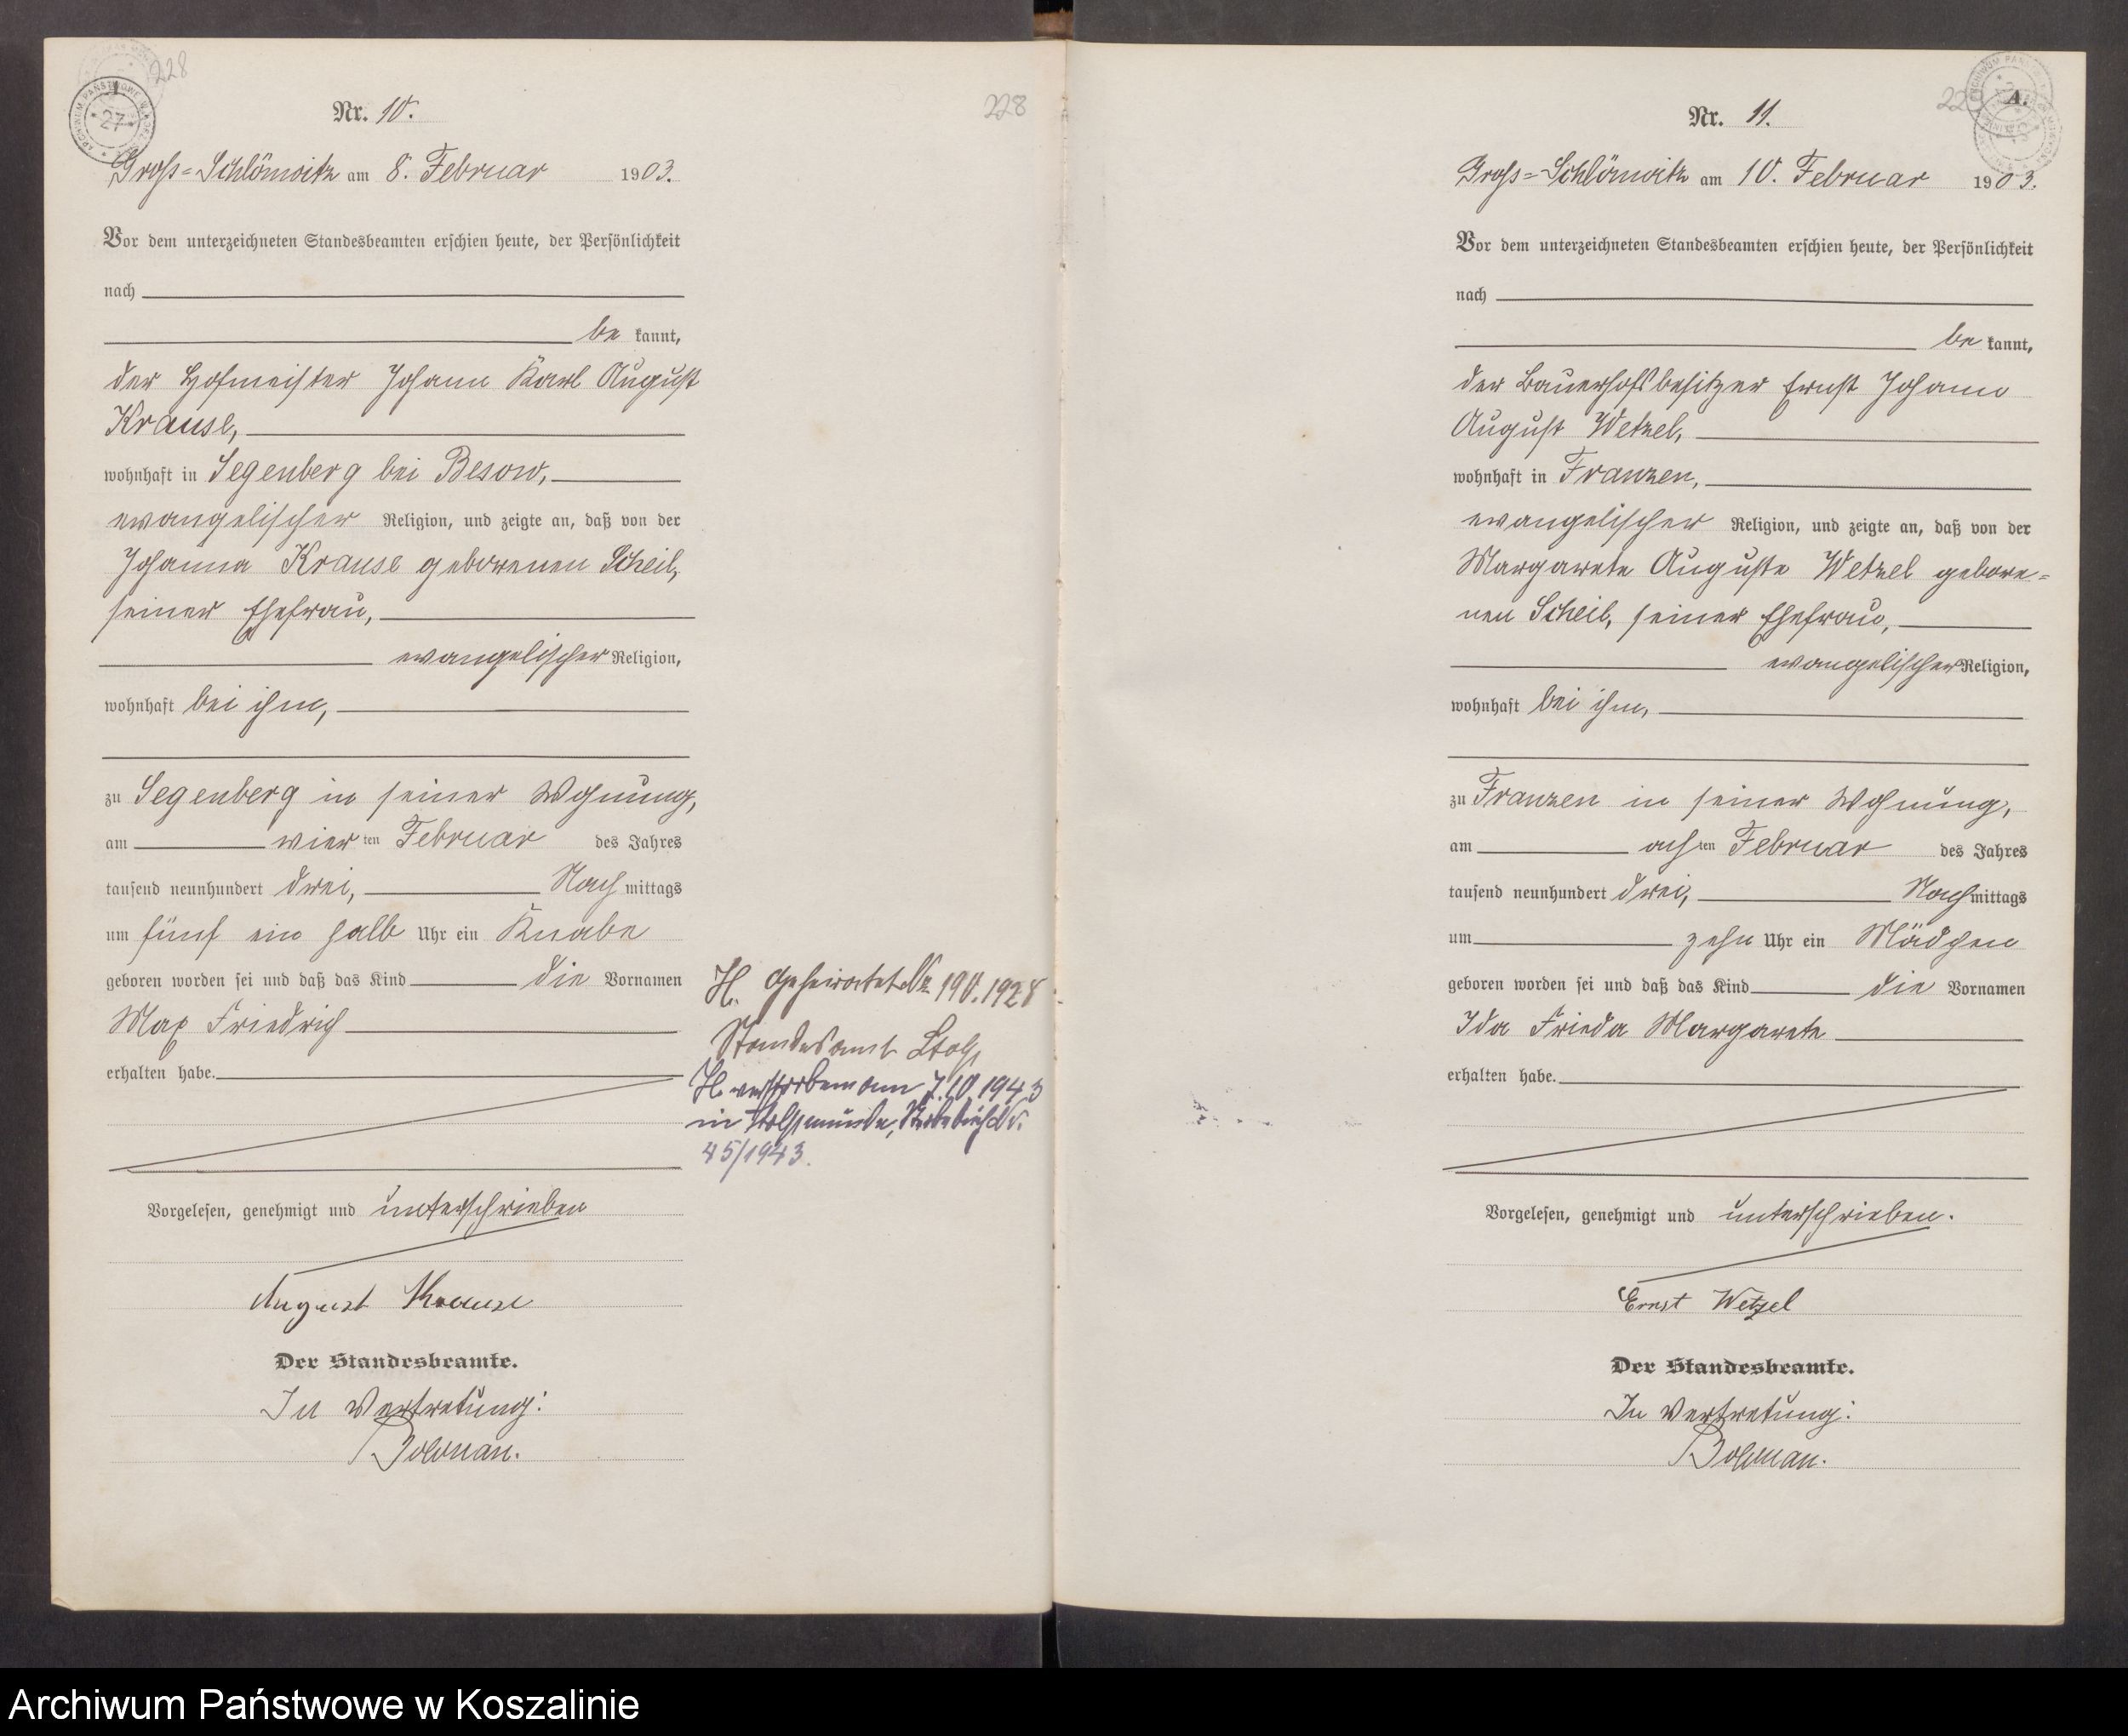 228
Nr. 10.
Groß-Schlönwitz am 8. Februar 1903.
Vor dem unterzeichneten Standesbeamten erschien heute, der Persönlichkeit
nach
be kannt,
der Hofmeister Johann Karl August
Krause,
wohnhaft in Segenberg bei Besow,
evangelischer Religion, und zeigte an, daß von der
Johanna Krause geborenen Scheil,
seiner Ehefrau,
evangelischer Religion,
wohnhaft bei ihm,
zu Segenberg in seiner Wohnung,
am vier ten Februar des Jahres
tausend neunhundert drei, Nach mittags
um fünf ein halb Uhr ein Knabe
geboren worden sei und daß das Kind die Vornamen
Max Friedrich
erhalten habe.
Vorgelesen, genehmigt und unterschrieben
August Krause
Der Standesbeamte.
In Vertretung:
H. geheiratet Nr. 190.1928
Standesamt Stolp
H. verstorben am 7.10.1943
in Stolpmünde, Sterbebuch Nr.
45/1943.
228
Nr. 11.
Groß-Schlönwitz am 10. Februar 1903.
Vor dem unterzeichneten Standesbeamten erschien heute, der Persönlichkeit
nach
be kannt,
der Bauerhofsbesitzer Ernst Johann
August Wetzel,
wohnhaft in Franzen,
evangelischer Religion, und zeigte an, daß von der
Margarete Auguste Wetzel gebore-
nen Scheil, seiner Ehefrau,
evangelischer Religion,
wohnhaft bei ihm,
zu Franzen in seiner Wohnung,
am ach ten Februar des Jahres
tausend neunhundert drei, Nach mittags
um zehn Uhr ein Mädchen
geboren worden sei und daß das Kind die Vornamen
Ida Frieda Margarete
erhalten habe.
Vorgelesen, genehmigt und unterschrieben.
Ernst Wetzel
Der Standesbeamte.
In Vertretung:
Archiwum Państwowe w Koszalinie